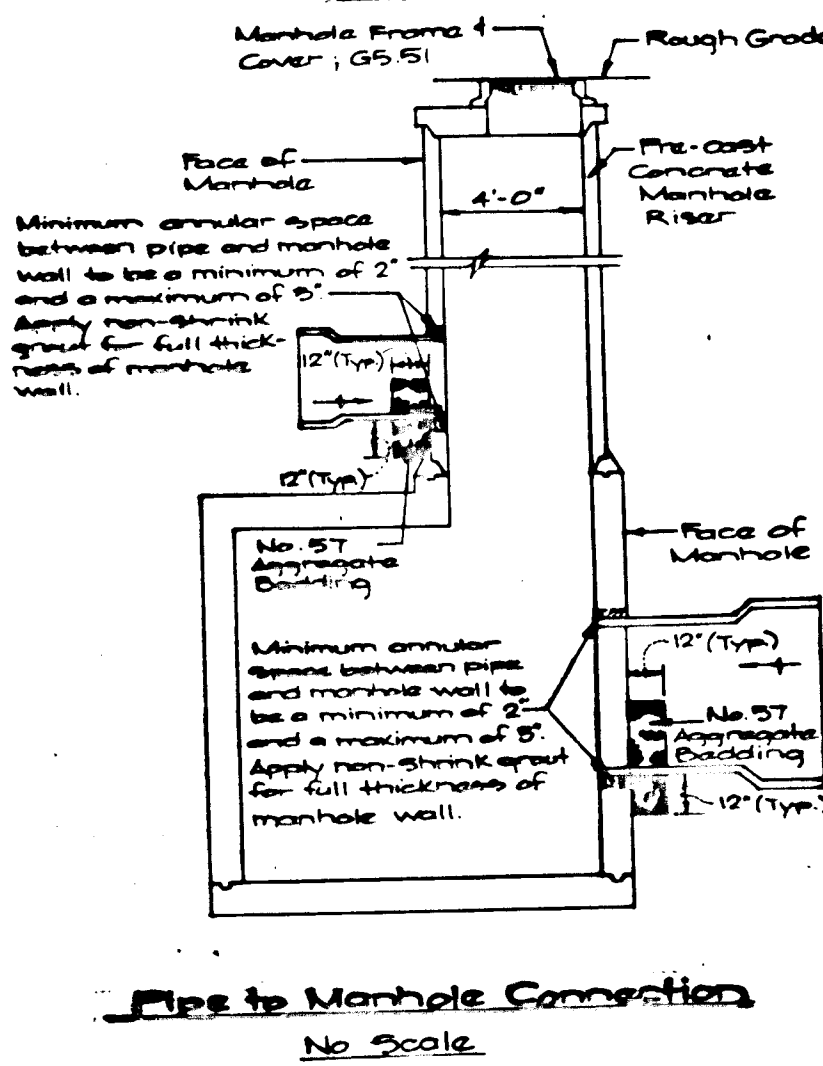 Manhole Frame &
Cover ; G5.51
Rough Grade
Face of
Manhole
Pre-cast
Concrete
Manhole
Riser
4'-0"
Minimum annular space
between pipe and manhole
wall to be a minimum of 2"
and a maximum of 3".
Apply non-shrink
grout for full thick-
ness of manhole
wall.
12"(Typ.)
12"(Typ.)
No. 57
Aggregate
Bedding
Face of
Manhole
Minimum annular
space between pipe
and manhole wall to
be a minimum of 2"
and a maximum of 3".
Apply non-shrink grout
for full thickness of
manhole wall.
12"(Typ.)
No. 57
Aggregate
Bedding
12"(Typ.)
Pipe to Manhole Connection
No Scale